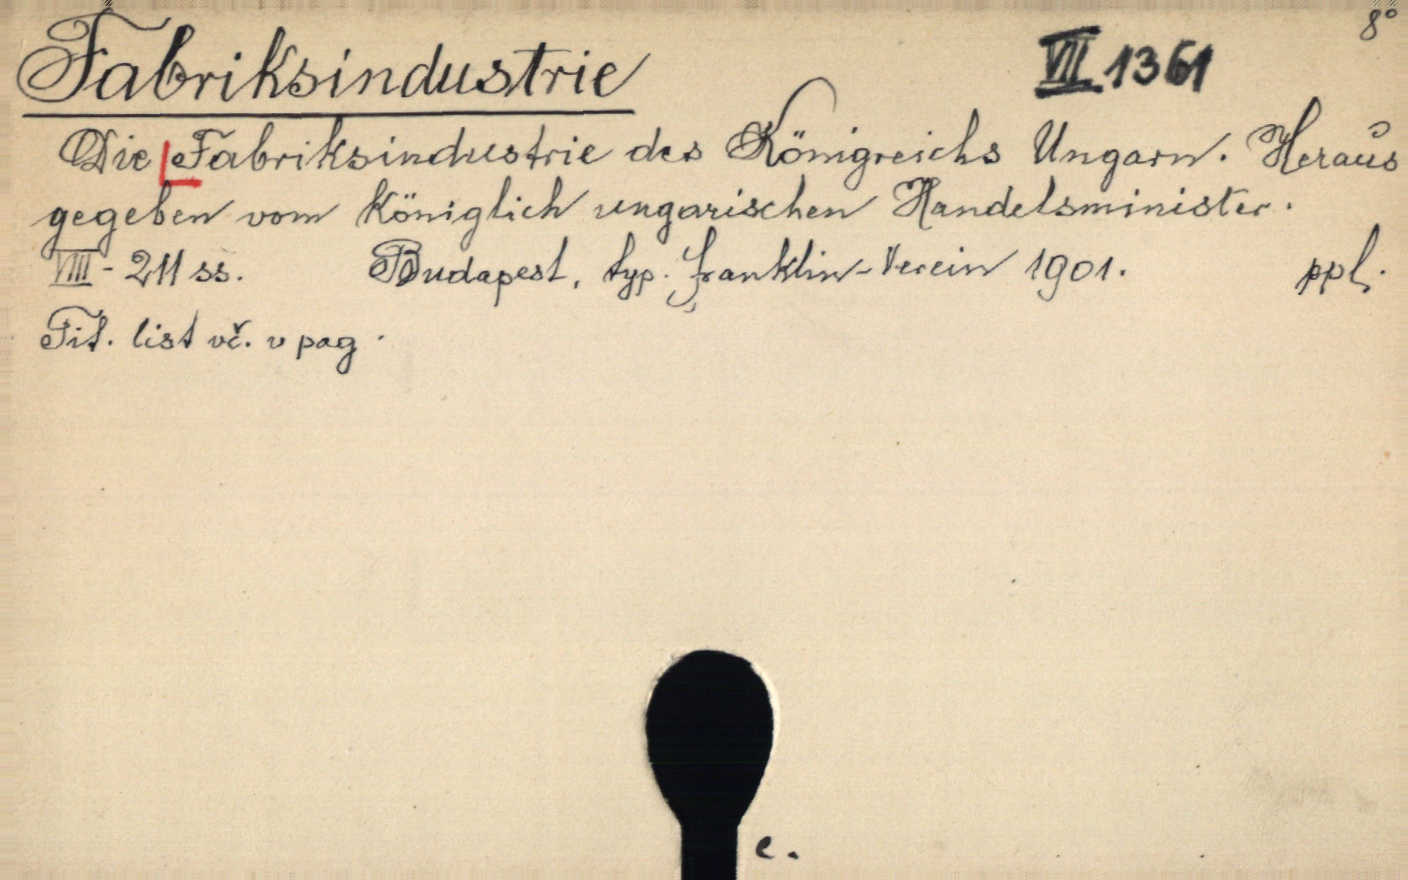 8°
Fabriksindustrie VII 1361
Die Fabriksindustrie des Königreichs Ungarn. Heraus
gegeben vom königlich ungarischen Handelsminister.
VIII - 211 ss. Budapest, typ. Franklin-Verein 1901. ppl.
Tit. list vč. v pag.
e.